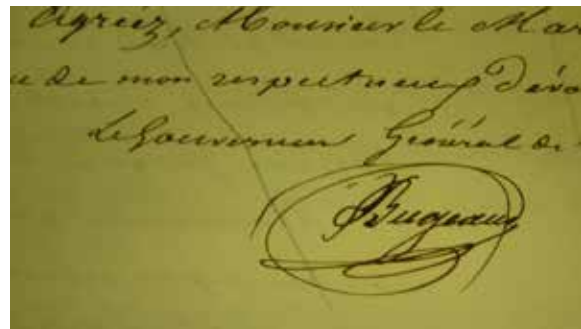 Agréez, Monsieur le Mar
de mon respectueux dévo
Le Gouverneur Général de
Bugeaud